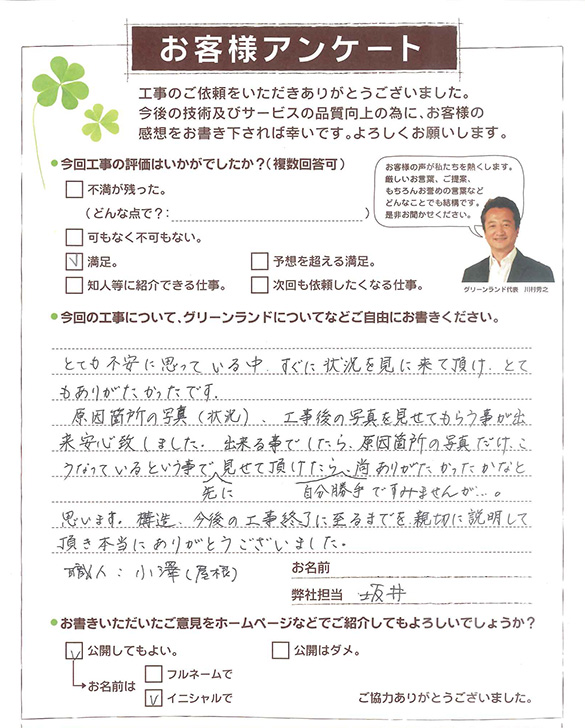 お客様アンケート
工事のご依頼をいただきありがとうございました。
今後の技術及びサービスの品質向上の為に、お客様の
感想をお書き下されば幸いです。よろしくお願いします。
●今回工事の評価はいかがでしたか?(複数回答可)
不満が残った。
(どんな点で?: )
可もなく不可もない。
満足。
予想を超える満足。
知人等に紹介できる仕事。
次回も依頼したくなる仕事。
お客様の声が私たちを熱くします。
厳しいお言葉、ご提案、
もちろんお誉めの言葉など
どんなことでも結構です。
是非お聞かせください。
グリーンランド代表 川村秀之
●今回の工事について、グリーンランドについてなどご自由にお書きください。
とても不安に思っている中、すぐに状況を見に来て頂け、とて
もありがたかったです。
原因箇所の写真(状況)、工事後の写真を見せてもらう事が出
来安心致しました。出来る事でしたら、原因箇所の写真だけ、こ
うなっているという事で見せて頂けたら、尚ありがたかったかなと
先に 自分勝手ですみませんが…。
思います。構造、今後の工事終了に至るまでを親切に説明して
頂き本当にありがとうございました。
職人:小澤(屋根)
お名前
弊社担当 坂井
●お書きいただいたご意見をホームページなどでご紹介してもよろしいでしょうか?
公開してもよい。
公開はダメ。
お名前は
フルネームで
イニシャルで
ご協力ありがとうございました。